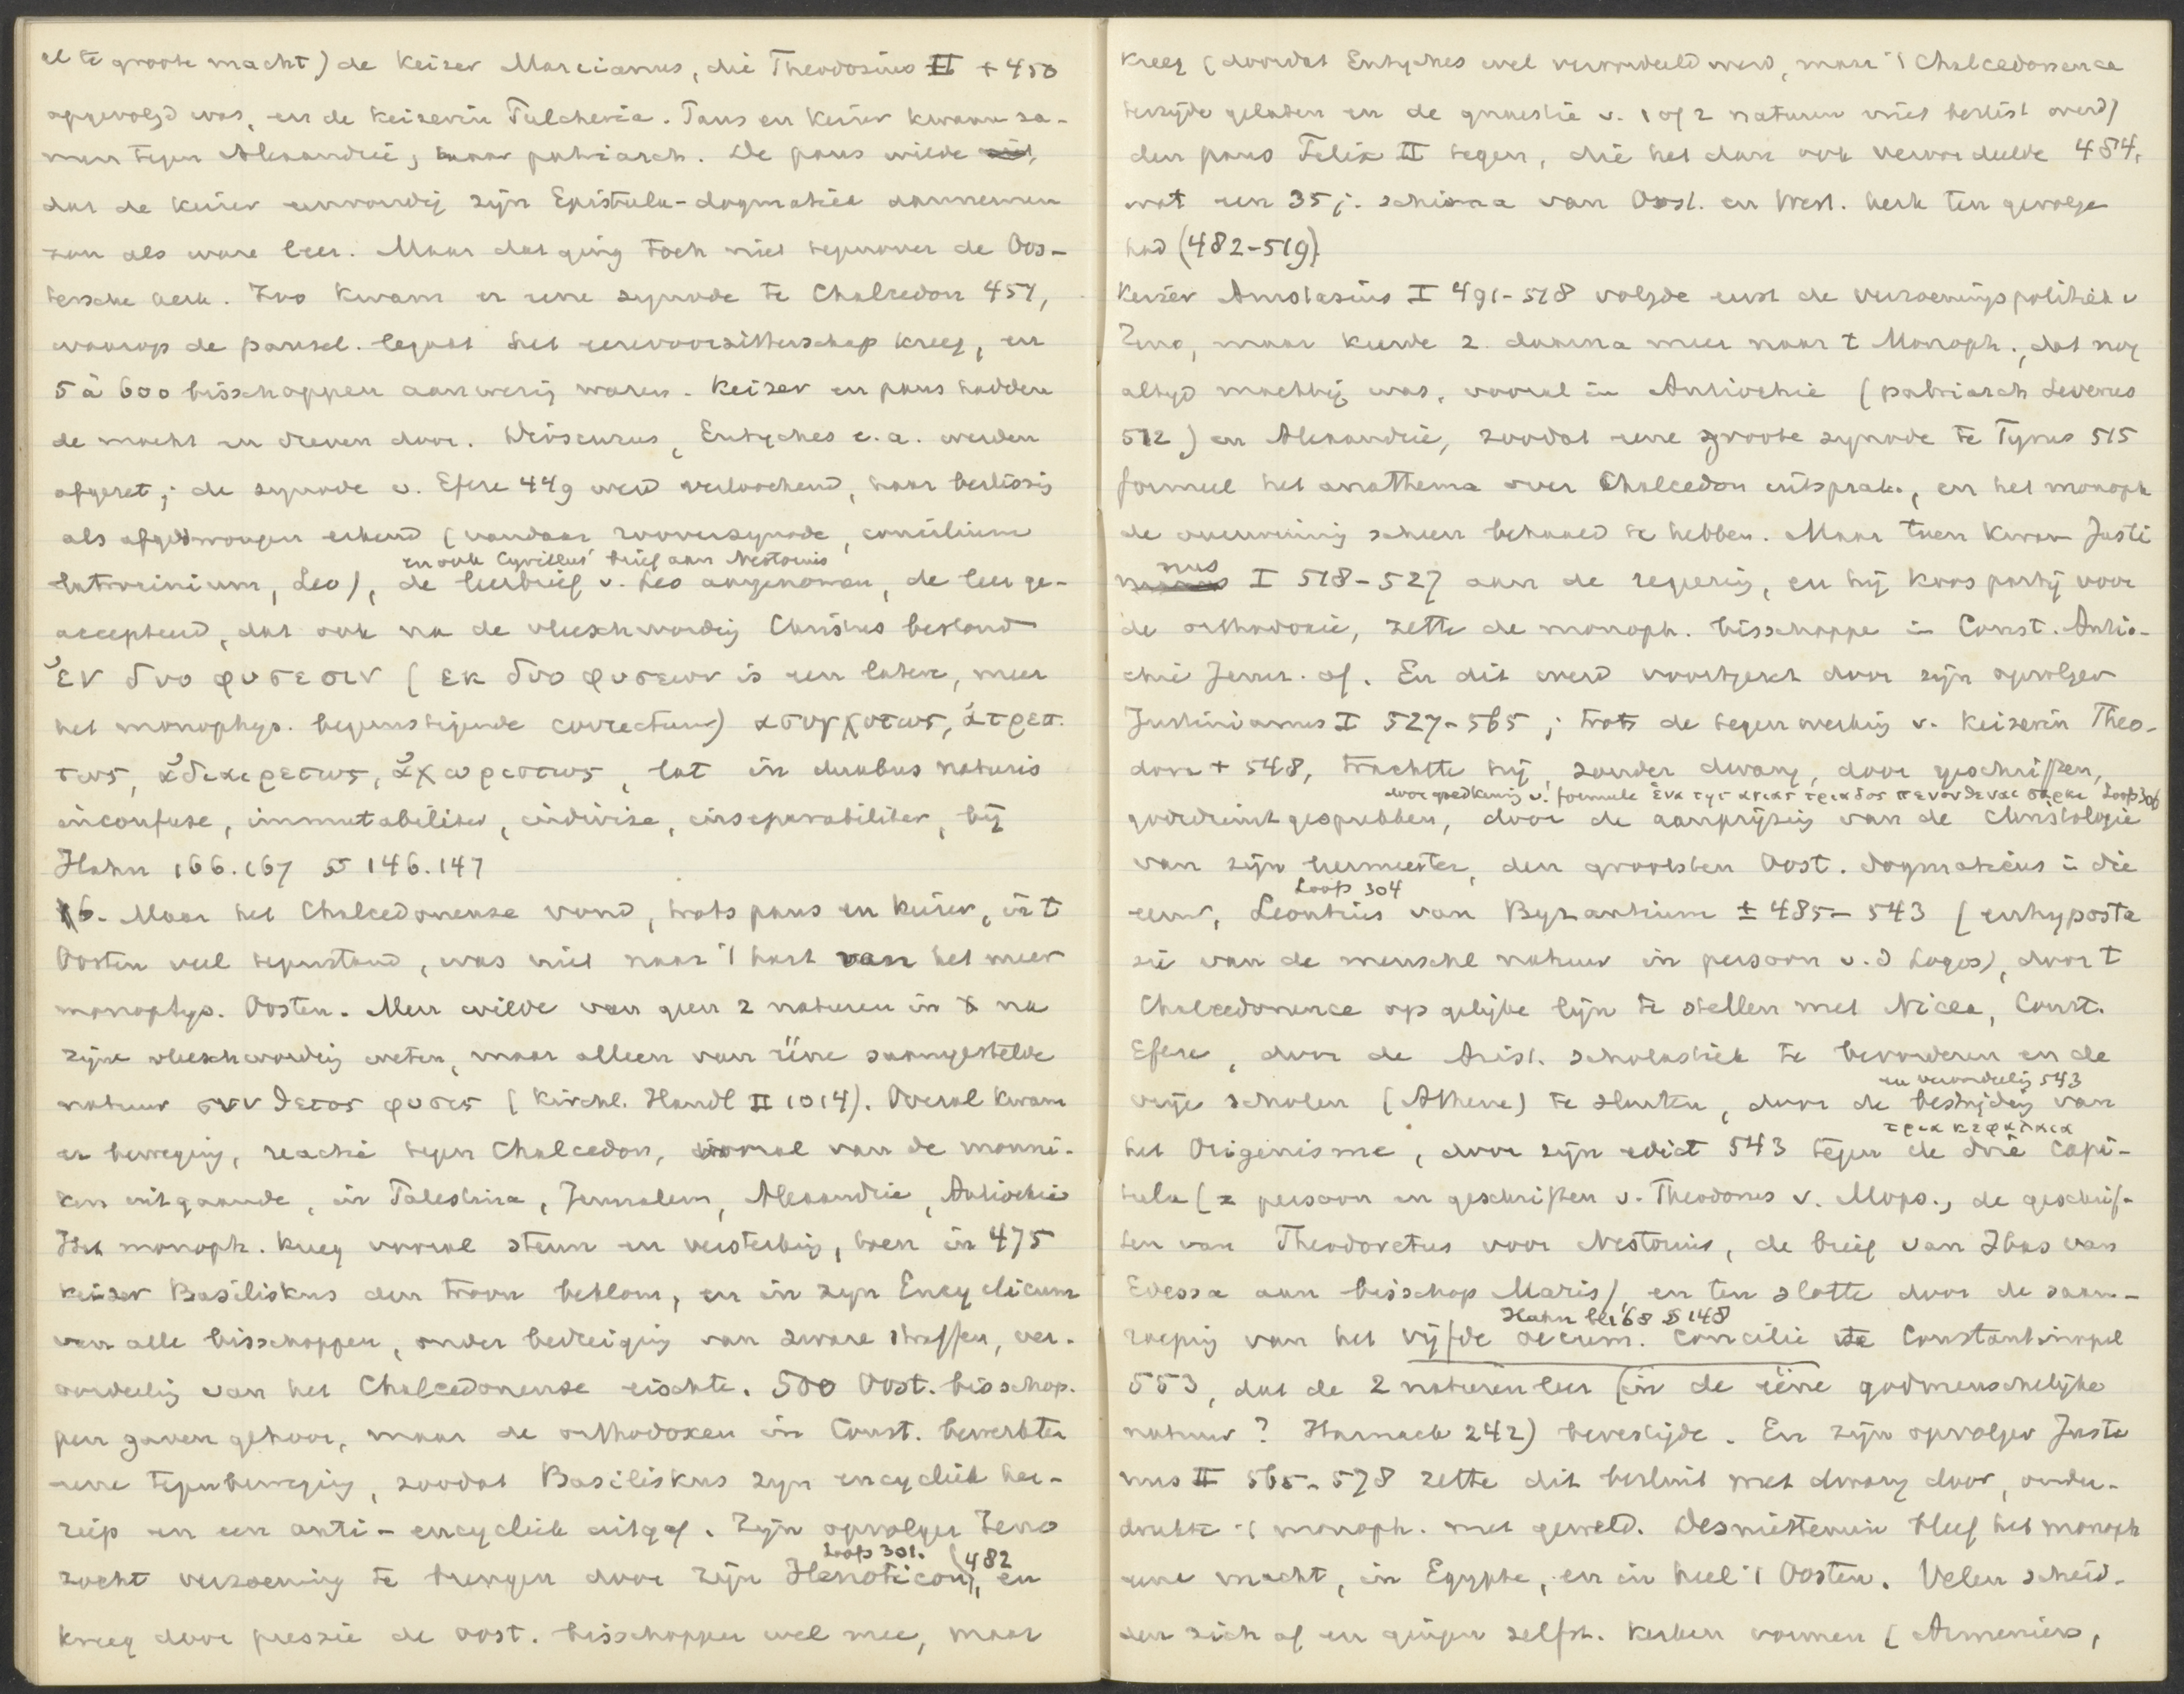 al te groote macht) de Keizer Marcianus, die Theodosius II + 450
opgevolgd was, en de keizerin Pulcheria. Paus en Keizer kwamen za-
men tegen Alexandrië, haar patriarch. De paus wilde
dat de Keizer eenvoudig zijn Epistula-dogmatica aannemen
zou als ware leer. Maar dat ging toch niet tegenover de Oos-
tersche kerk. Zoo kwam er eene synode te Chalcedon 451,
waarop de pausel. legaat het eerevoorzitterschap kreeg, en
5 à 600 bisschoppen aanwezig waren. Keizer en paus hadden
de macht en dreven door. Dioscurus, Eutyches e.a. werden
afgezet; de synode v. Efeze 449 werd verloochend, haar beslissing
als afgedwongen erkend (vandaar rooversynode, concilium
en ook Cyrillus' brief aan Nestorius
latrocinium, Leo), de leerbrief v. Leo aangenomen, de leer ge-
accepteerd, dat ook na de vleeschwording Christus bestond
ἐν δυο φυσεσιν (εκ δυο φυσεων is een latere, meer
het monophys. begunstigende correctuur) ασυγχυτως, ἀτρεπ.
τως, ἀδιαιρετως, ἀχωριστως, lat in duabus naturis
inconfuse, immutabiliter, indivise, inseparabiliter, bij
Hahn 166.167 § 146.147
6. Maar het Chalcedonense vond, trots paus en keizer, in t
Oosten veel tegenstand, was niet naar 't hart van het meer
monophys. Oosten. Men wilde van geen 2 naturen in X na
zijne vleeschwording weten, maar alleen van ééne saamgestelde
natuur συνθετος φυσις (Kirchl. Handl II 1014). Overal kwam
er beweging, reactie tegen Chalcedon, vooral van de monni-
ken uitgaande, in Palestina, Jeruzalem, Alexandrie, Antiochie
Het monoph. kreeg vooral steun en versterking, toen in 475
keizer Basiliskus den troon beklom, en in zijn Encyclicum
van alle bisschoppen, onder bedreiging van zware straffen, ver-
oordeeling van het Chalcedonense eischte. 500 Oost. bisschop.
pen gaven gehoor, maar de orthodoxen in Const. bewerkten
eene tegenbeweging, zoodat Basiliskus zijn encycliek her-
riep en een anti-encycliek uitgaf. Zijn opvolger Zeno
Loofs 301. (482
zocht verzoening te brengen door zijn Henoticon), en
kreeg door pressie de oost. bisschoppen wel mee, maar
kreeg (doordat Eutyches wel veroordeeld werd, maar 't Chalcedonense
terzijde gelaten en de quaestie v. 1 of 2 naturen niet beslist werd)
den paus Felix II tegen, die het dan ook veroordeelde 484,
wat een 35 j. schisma van Oost. en West. kerk ten gevolge
had (482-519).
Keizer Anastasius I 491-518 volgde eerst de verzoeningspolitiek v
Zeno, maar keerde z. daarna meer naar t Monoph., dat nog
altijd machtig was, vooral in Antiochie (patriarch Severus
512) en Alexandrie, zoodat eene groote synode te Tyrus 515
formeel het anathema over Chalcedon uitsprak, en het monoph
de overwinning scheen behaald te hebben. Maar toen kwam Justi
nus
I 518-527 aan de regeering, en hij koos partij voor
de orthodoxie, zette de monoph. bisschoppe in Const. Antio-
chie Jeruz. af. En dit werd voortgezet door zijn opvolger
Justinianus I 527-565; trots de tegenwerking v. Keizerin Theo-
dora + 548, trachtte hij, zonder dwang, door geschriften,
door goedkeuring v. formule ἑνα της αγιας τριαδος πεπονθεναι σαρκι Loofs 306
godsdienstgesprekken, door de aanprijzing van de Christologie
van zijn leermeester, den grootsten Oost. dogmaticus in die
Loofs 304
eeuw, Leontius van Byzantium ± 485-543 (enhyposta
sie van de menschel natuur in persoon v. d Logos), door t
Chalcedonense op gelijke lijn te stellen met Nicea, Const.
Efeze, door de Arist. scholastiek te bevorderen en de
en veroordeeling 543
vrije scholen (Athene) te sluiten, door de bestrijding van
τρια κεφαλαια
het Origenisme, door zijn edict 543 tegen de drie capi-
tula (= persoon en geschriften v. Theodorus v. Mops., de geschrif-
ten van Theodoretus voor Nestorius, de brief van Ibas van
Edessa aan bisschop Maris), en ten slotte door de saam-
Hahn bl 168 § 148
roeping van het vijfde oecum. concilie te Constantinopel
553, dat de 2 naturenleer (in de ééne godmenschelijke
natuur? Harnack 242) bevestigde. En zijn opvolger Justi
nus II 565-578 zette dit besluit met dwang door, onder-
drukte 't monoph. met geweld. Desniettemin bleef het monoph
eene macht, in Egypte, en in heel 't Oosten. Velen scheid-
den zich af en gingen zelfst. kerken vormen (Armeniers,